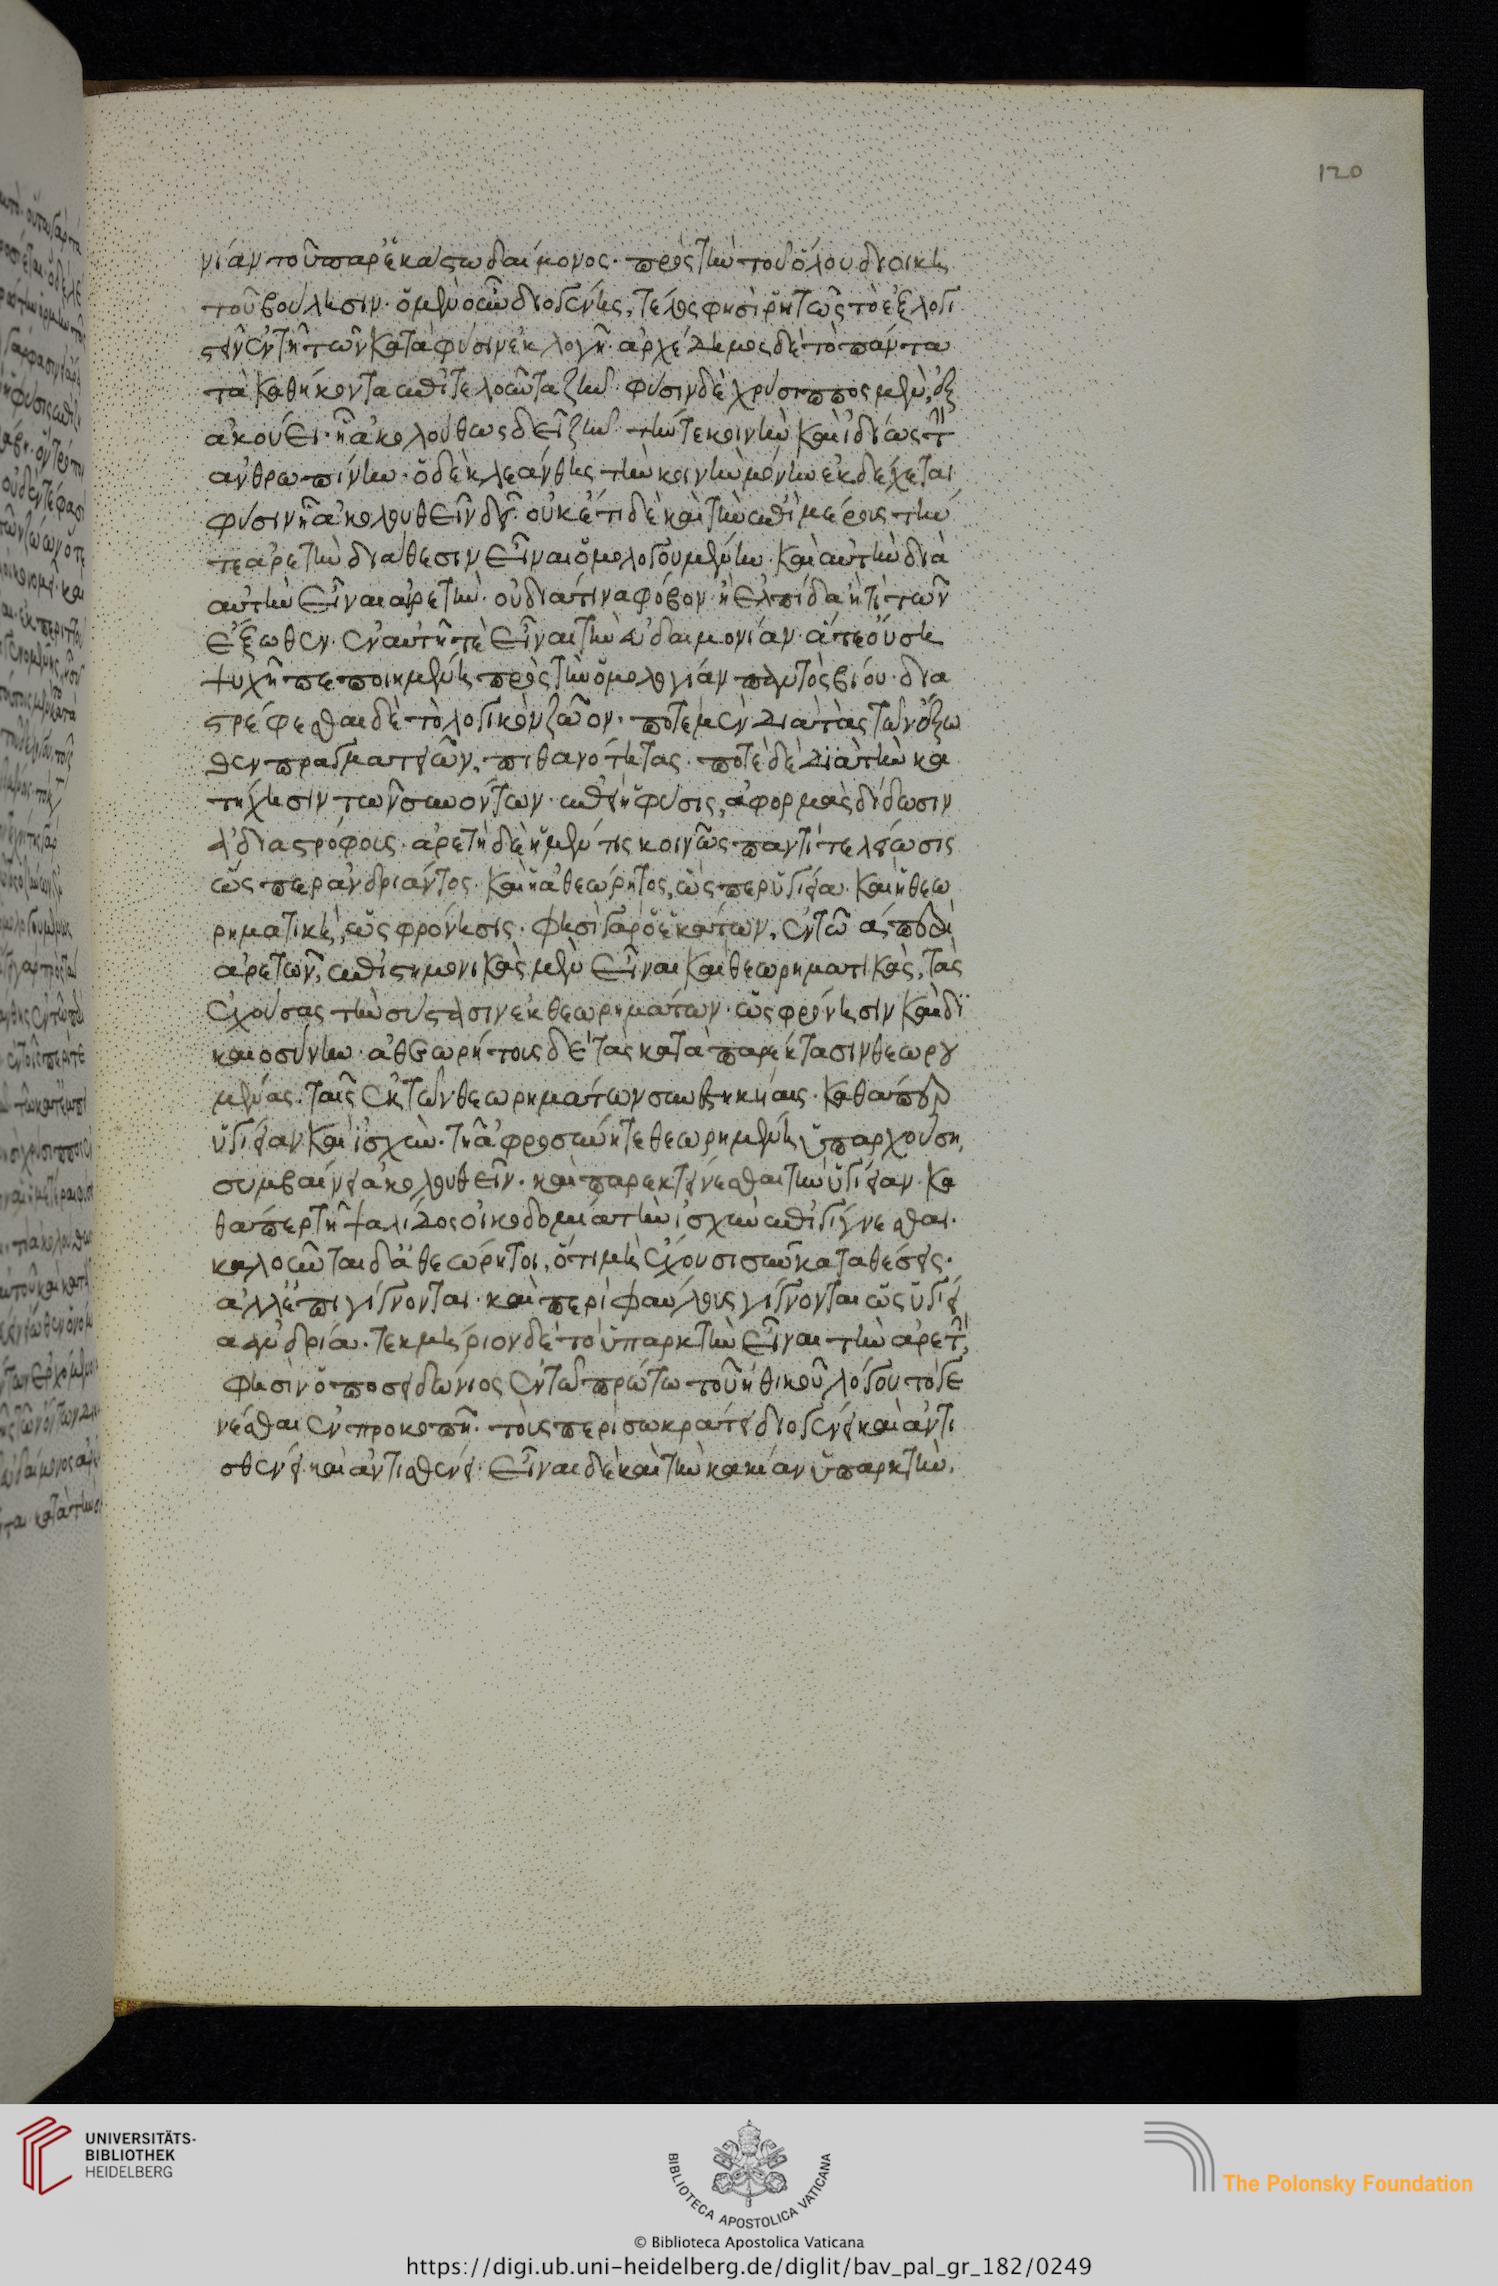 120
νίαν τοῦ παρ' ἑκάστω δαίμονος· πρὸς τὴν τοῦ ὅλου διοικη
τοῦ βούλησιν· ὁ μὲν οὖν διογένης, τέλος φησὶ ῥητῶς τὸ εὐλογι
στεῖν ἐν τῆ τῶν κατὰ φύσιν ἐκλογῆ· ἀρχέδημος δὲ τὸ πάντα
τὰ καθήκοντα ἐπιτελοῦντα ζῆν· φύσιν δὲ χρύσιππος μὲν, ἐξ
ἀκούει· ἧ ἀκολούθως δεῖ ζῆν· τήν τε κοινὴν καὶ ἰδίως τὴν
ἀνθρωπίνην· ὁ δὲ κλεάνθης τὴν κοινὴν μόνην ἐκδέχεται
φύσιν ἧ ἀκολουθεῖν δεῖ· οὐκέτι δὲ καὶ τὴν ἐπὶ μέρους τήν
τε ἀρετὴν διάθεσιν εἶναι ὁμολογουμένην· καὶ αὐτὴν δι'
αὐτὴν εἶναι αἱρετὴν· οὐ διά τινα φόβον ἢ ἐλπίδα ἤ τι τῶν
ἔξωθεν· ἐν αὐτῆ τε εἶναι τὴν εὐδαιμονίαν· ἅτε οὔση
ψυχῆ πεποιημένη πρὸς τὴν ὁμολογίαν παντὸς βίου· δια
στρέφεσθαι δὲ τὸ λογικὸν ζῶον· ποτὲ μὲν διὰ τὰς τῶν ἔξω
θεν πραγματειῶν, πιθανότητας· ποτὲ δὲ διὰ τὴν κα
τήχησιν τῶν συνόντων· ἐπεὶ ἡ φύσις, ἀφορμὰς δίδωσιν
ἀδιαστρόφους· ἀρετὴ δὲ ἡ μέν τις κοινῶς παντὶ τελείωσις
ὥσπερ ἀνδριάντος· καὶ ἡ ἀθεώρητος, ὥσπερ ὑγίεια· καὶ ἡ θεω
ρηματικὴ, ὡς φρόνησις· φησὶ γὰρ ὁ ἑκάτων, ἐν τῶ ᾱ περὶ
ἀρετῶν, ἐπιστημονικὰς μὲν εἶναι καὶ θεωρηματικὰς, τὰς
ἐχούσας τὴν σύστασιν ἐκ θεωρημάτων· ὡς φρόνησιν καὶ δι
καιοσύνην· ἀθεωρήτους δὲ τὰς κατὰ παρέκτασιν θεωρου
μένας· ταῖς ἐκ τῶν θεωρημάτων συνεστηκυίαις· καθάπερ
ὑγίειαν καὶ ἰσχὺν· τῆ σωφροσύνη τεθεωρημένη ὑπαρχούση,
συμβαίνει ἀκολουθεῖν· καὶ παρεκτείνεσθαι τὴν ὑγίειαν· κα
θάπερ τῆ ψαλίδος οἰκοδομία τὴν ἰσχὺν ἐπιγίνεσθαι·
καλοῦνται δ' ἀθεώρητοι, ὅτι μὴ ἔχουσι συγκαταθέσεις·
ἀλλ' ἐπιγίγνονται· καὶ περὶ φαύλους γίγνονται ὡς ὑγίεια
ἀνδρία· τεκμήριον δὲ τὸ ὑπαρκτὴν εἶναι τὴν ἀρετήν,
φησὶν ὁ ποσειδώνιος ἐν τῶ πρώτω τοῦ ἠθικοῦ λόγου τὸ γε
νέσθαι ἐν προκοπῆ· τοὺς περὶ σωκράτη διογένη καὶ ἀντι
σθένη· καὶ ἀντισθένη· εἶναι δὲ καὶ τὴν κακίαν ὑπαρκτὴν·
UNIVERSITÄTS-
BIBLIOTHEK
HEIDELBERG
BIBLIOTECA APOSTOLICA VATICANA
The Polonsky Foundation
© Biblioteca Apostolica Vaticana
https://digi.ub.uni-heidelberg.de/diglit/bav_pal_gr_182/0249